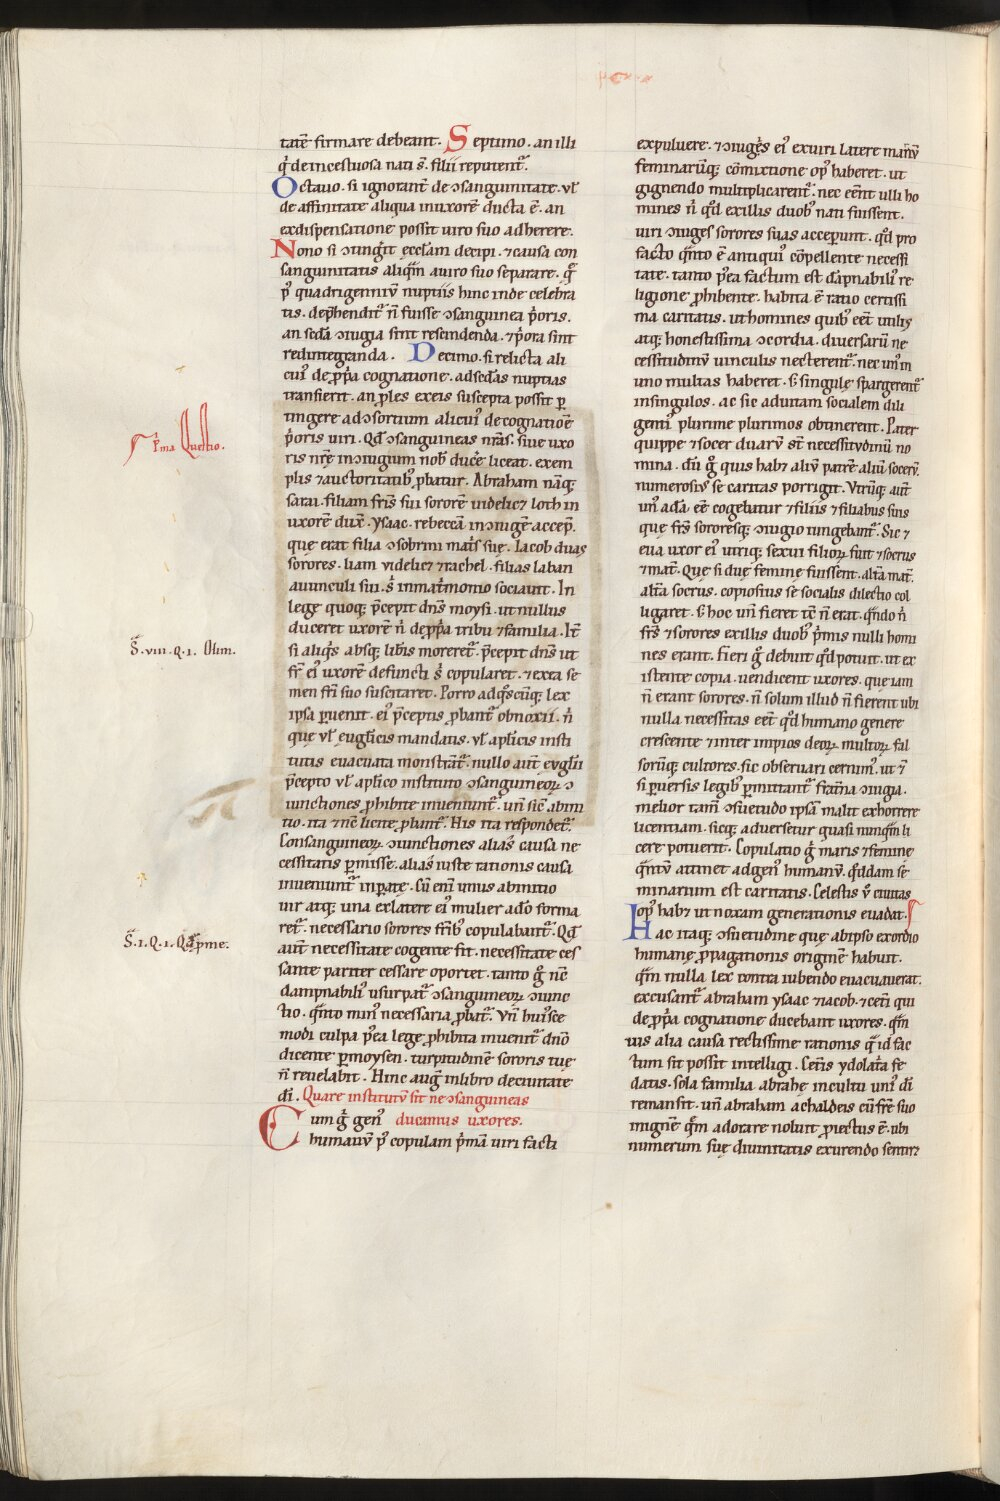 tatē firmare debeant. Septimo. an illi
q̇ de incestuosa nati s̄. filii reputent᷑.
Octauo. si ignorant᷑ de ↄsanguinitate. vł
de affinitate aliqua in uxorē ducta ē. an
ex dispensatione possit uiro suo adherere.
Nono si ↄtingit ęcclam decipi. ⁊ causa con
sanguinitatis aliquā a uiro suo separare. q̄
pꝰ quadrigenniū nuptiis hinc inde celebra
tis. deꝑhendit᷑ n̄ fuisse ↄsanguinea p̓oris.
an scđa ↄiugia sint rescindenda. ⁊ p̓ora sint
redintegranda. Decimo. si relicta ali
cuiꝰ de ꝓpa cognatione. ad scđas nuptias
transierit. an ꝓles ex eis suscepta possit ꝑ
tingere ad ↄsortium alicuiꝰ de cognatiōe
p̓oris uiri. Qđ ↄsanguineas nr̄as. siue uxo
ris nr̄ę in ↄiugium nob̄ ducē liceat. exem
plis ⁊ auctoritatibꝰ ꝓbatur. Abraham nāq;
sarai. filiam fr̄is sui sororē uidelic⁊ loth in
uxorē dux̄. Ysaac. rebeccā in ↄiugē accep̄.
que erat filia ↄsobrini mat̓s suę. Iacob duas
sorores. liam uidelic⁊ ⁊ rachel. filias laban
auunculi sui. s̓ in mat̓monio sociauit. In
lege quoq; p̄cepit dn̄s moysi. ut nullus
duceret uxorē n̄ de ꝓpa tribu ⁊ familia. It̄
si aliq̓s absq; lib̓is moreret᷑. p̄cepit dn̄s ut
fr̄ eiꝰ uxorē defuncti s̓ copularet. ⁊ ex ea se
men fr̄i suo suscitaret. Porro ad q̓scūq; lex
ipsa ꝑuenit. eiꝰ p̄ceptis ꝓbant᷑ obnoxii. n̓
que vł euglicis mandatis. vł aplicis insti
tutis euacuata monstrāt᷑. nullo aut̄ euglii
p̄cepto vł aplico instituto ↄsanguineoꝝ ↄ
iunctiones ꝓhibite inueniunt᷑. un̄ sic̄ ab ini
tio. ita ⁊ nc̄ licite ꝓbant᷑. His ita respondet᷑.
Consanguineoꝝ ↄiunctiones alias̓ causa ne
cessitatis ꝑmisse. alias̓ iuste rationis causa
inueniunt᷑ inꝑatę. Cū enī unus ab initio
uir atq; una ex latere eiꝰ mulier a dō forma
ret᷑. necessario sorores fr̄ibꝰ copulabant᷑. Qđ
aut̄ necessitate cogente fit. necessitate ces
sante pariter cessare oportet. tanto g̊ nc̄
dampnabiliꝰ usurpat᷑ ↄsanguineoꝝ ↄiunc
tio. q̄nto minꝰ necessaria ꝓbat᷑. Vn̄ huiꝰsce
modi culpa p̄ea lege ꝓhibita inuenit᷑ dn̄o
dicente ꝑ moysen. turpitudinē sororis tuę
n̄ reuelabit. Hinc aug̓ in libro de ciuitate
dī. Quare institutū sit ne ↄsanguineas
Cum g̓ genꝰ ducamus uxores.
humanū pꝰ copulam p̓mā uiri facti
expuluere. ⁊ ↄiugẹ̄s eiꝰ ex uiri latere mariū
feminarūq; cōmixtione opꝰ haberet. ut
gignendo multiplicarent᷑. nec eēnt ulli ho
mines n̓ qđ ex illis duobꝰ nati fuissent.
uiri ↄiuges sorores suas acceperunt. qđ pro
facto q̄nto ē antiquiꝰ cōpellente necessi
tate. tanto p̄ea factum est dāpnabiliꝰ re
ligione ꝓhibente. habita ē ratio certissi
ma caritatis. ut homines quibꝰ eēt utilis
atq; honestissima ↄcordia. diuersarū ne
cessitudinū uinculis necterent᷑. nec unꝰ in
uno multas haberet. s̓ singulę spargerent᷑
in singulos. ac sic ad uitam socialem dili
gentiꝰ plurime plurimos obtinerent. Pater
quippe ⁊ socer duarū st̄ necessitudinū no
mina. dū g̊ quis hab⁊ aliū patrē aliū socerū.
numerosiꝰ se caritas porrigit. Vtrūq; aut̄
unꝰ adā. eē cogebatur ⁊ filiis ⁊ filiabus suis
que fr̄s sororesq; ↄiugio iungebant᷑. Sic ⁊
eua uxor eiꝰ utriq; sexui filioꝝ fuit ⁊ socrus
⁊ mat̓. Que si duę feminę fuissent. alt̓a mat̓.
alt̓a socrus. copiosius se socialis dilectio col
ligaret. s̓ hoc un̄ fieret tc̄ n̄ erat. q̄ndo n̓
fr̄s ⁊ sorores ex illis duobꝰ p̓mis nulli homi
nes erant. Fieri g̊ debuit qđ potuit. ut ex
istente copia. uendicent uxores. que iam
n̄ erant sorores. n̄ solum illud n̄ fierent ubi
nulla necessitas eēt qđ humano genere
crescente ⁊ inter impios deoꝝ multoꝝ fal
sorūq; cultores. sic obseruari cernimꝰ. ut ⁊
si ꝑuersis legibꝰ ꝑmittant᷑ frat̓na ↄiugia.
melior tam̄ ↄsuetudo ipsam malit exhorrere
licentiam. sicq; aduersetur quasi nunquā li
cere potuerit. Copulatio g̓ maris ⁊ femine
q̄ntū attinet ad genꝰ humanū. qđdam se
minarium est caritatis. Celestis ū ciuitas
opꝰ hab⁊ ut noxam generationis euadat.
Hac itaq; ↄsuetudine que ab ipso exordio
humanę ꝓpagationis originē habuit.
q̄m nulla lex contra iubendo euacuauerat.
excusant᷑ abraham ysaac ⁊ iacob. ⁊ cet̓i qui
de ꝓpa cognatione ducebant uxores. q̄m
uis alia causa rectissime rationis q̄ id fac
tum sit possit intelligi. Cet̓is ydolat̓a fe
datis. sola familia abrahę in cultu uniꝰ dī
remansit. un̄ abraham a chaldeis cū fr̄e suo
migrē q̄m adorare noluit ꝓiectus ē. ubi
numerum suę diuinitatis exurendo sentir⁊
P̓ma Questio.
S̄. viii. Q. 1. Olim.
S̄. 1. Q. 1. Qđ ꝓpme.